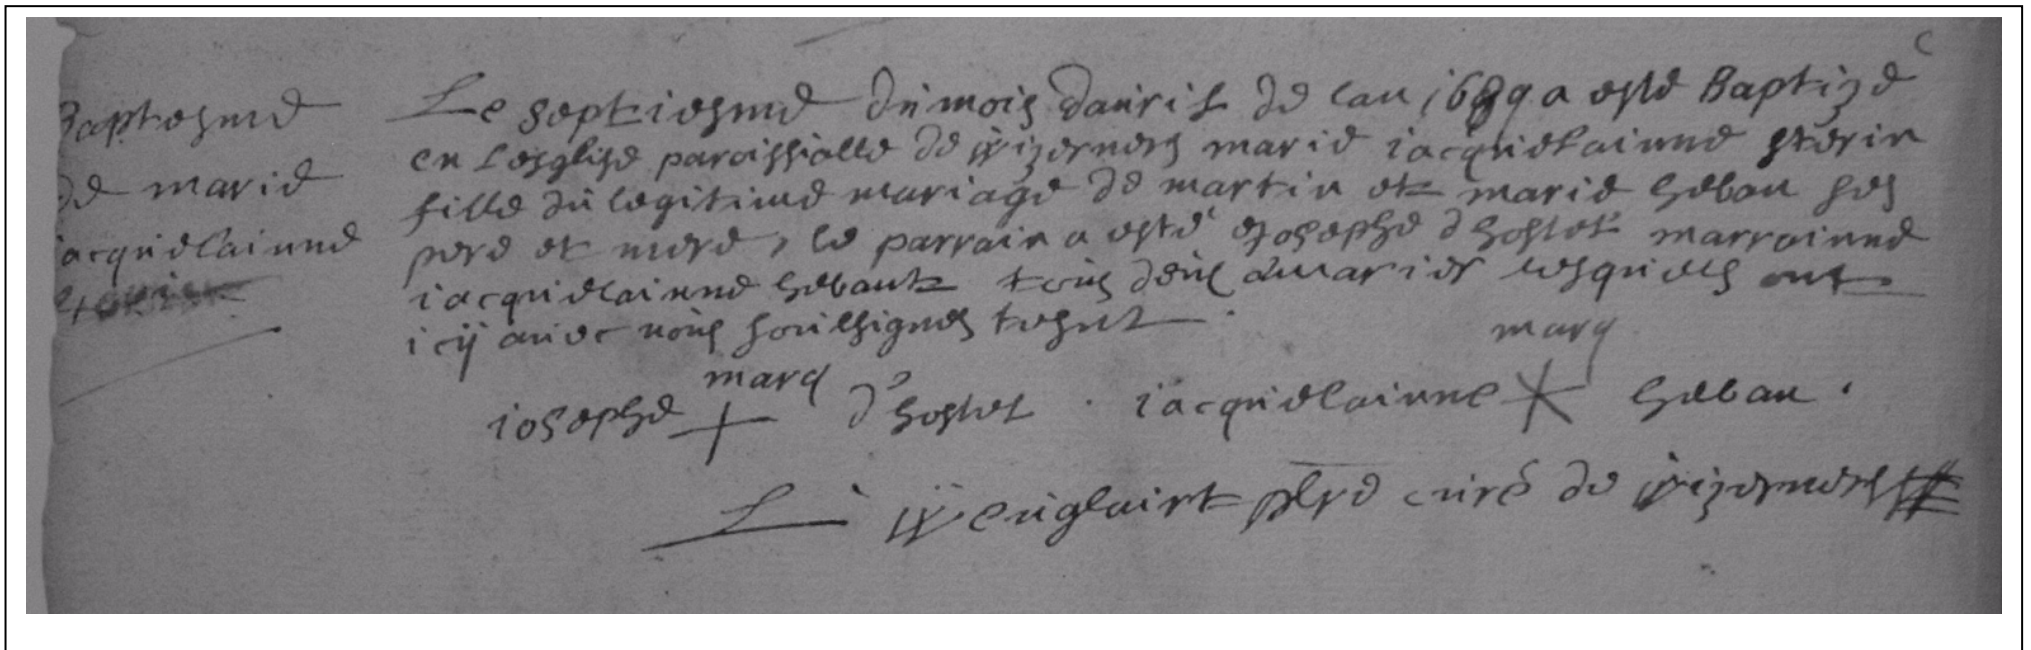 Baptesme
de marie
iacquelainne
Le septiesme du mois dauril de lan 1689 a esté Baptizé
en Lesglise paroissialle de wizernes marie iacquelainne
fille du legitime mariage de martin et marie heban ses
pere et mere, le parrain a esté Josephe d'hostel marrainne
iacquelainne hebant tous deux a marier lesquels ont
icÿ auec nous soussignes
marq marq
iosephe d'hostel iacquelainne heban.
L wenglairt pbre curé de wizernes